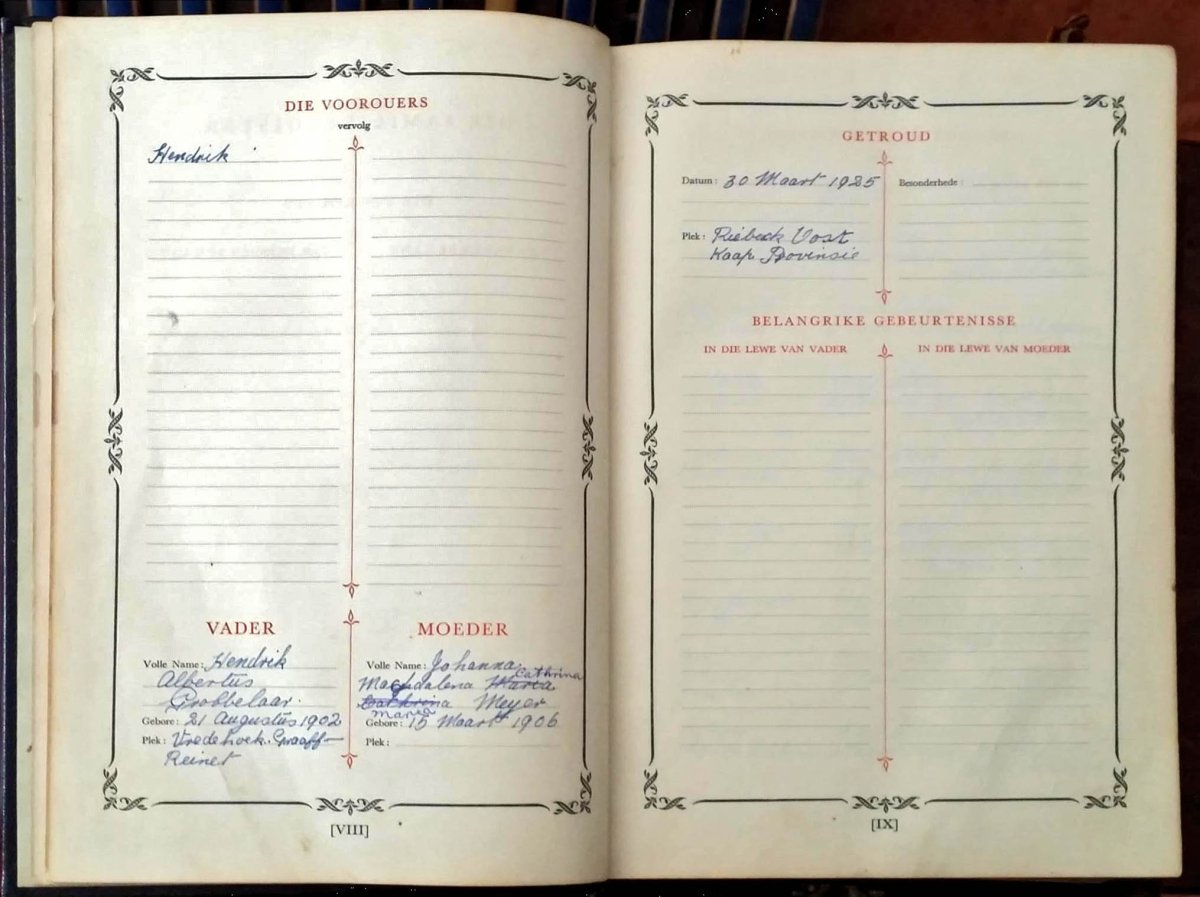 DIE VOOROUERS
vervolg
Hendrik
VADER
Volle Name: Hendrik
Albertus
Grobbelaar.
Gebore: 21 Augustus 1902
Plek: Vredehoek. Graaff-
Reinet
MOEDER
Volle Name: Johanna
Cathrina
Magdalena Maria
Cathrina Meyer
Maria
Gebore: 15 Maart 1906
Plek:
[VIII]
GETROUD
Datum: 30 Maart 1925
Besonderhede:
Plek: Riebeck Oost
Kaap Provinsie
BELANGRIKE GEBEURTENISSE
IN DIE LEWE VAN VADER
IN DIE LEWE VAN MOEDER
[IX]